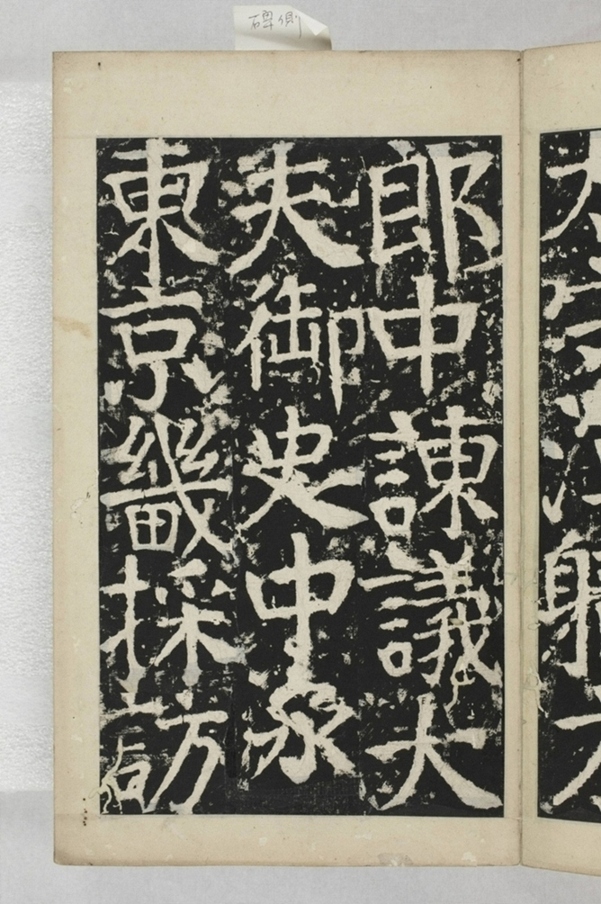 碑側
郎中諫議大
夫御史中丞
東京畿採訪